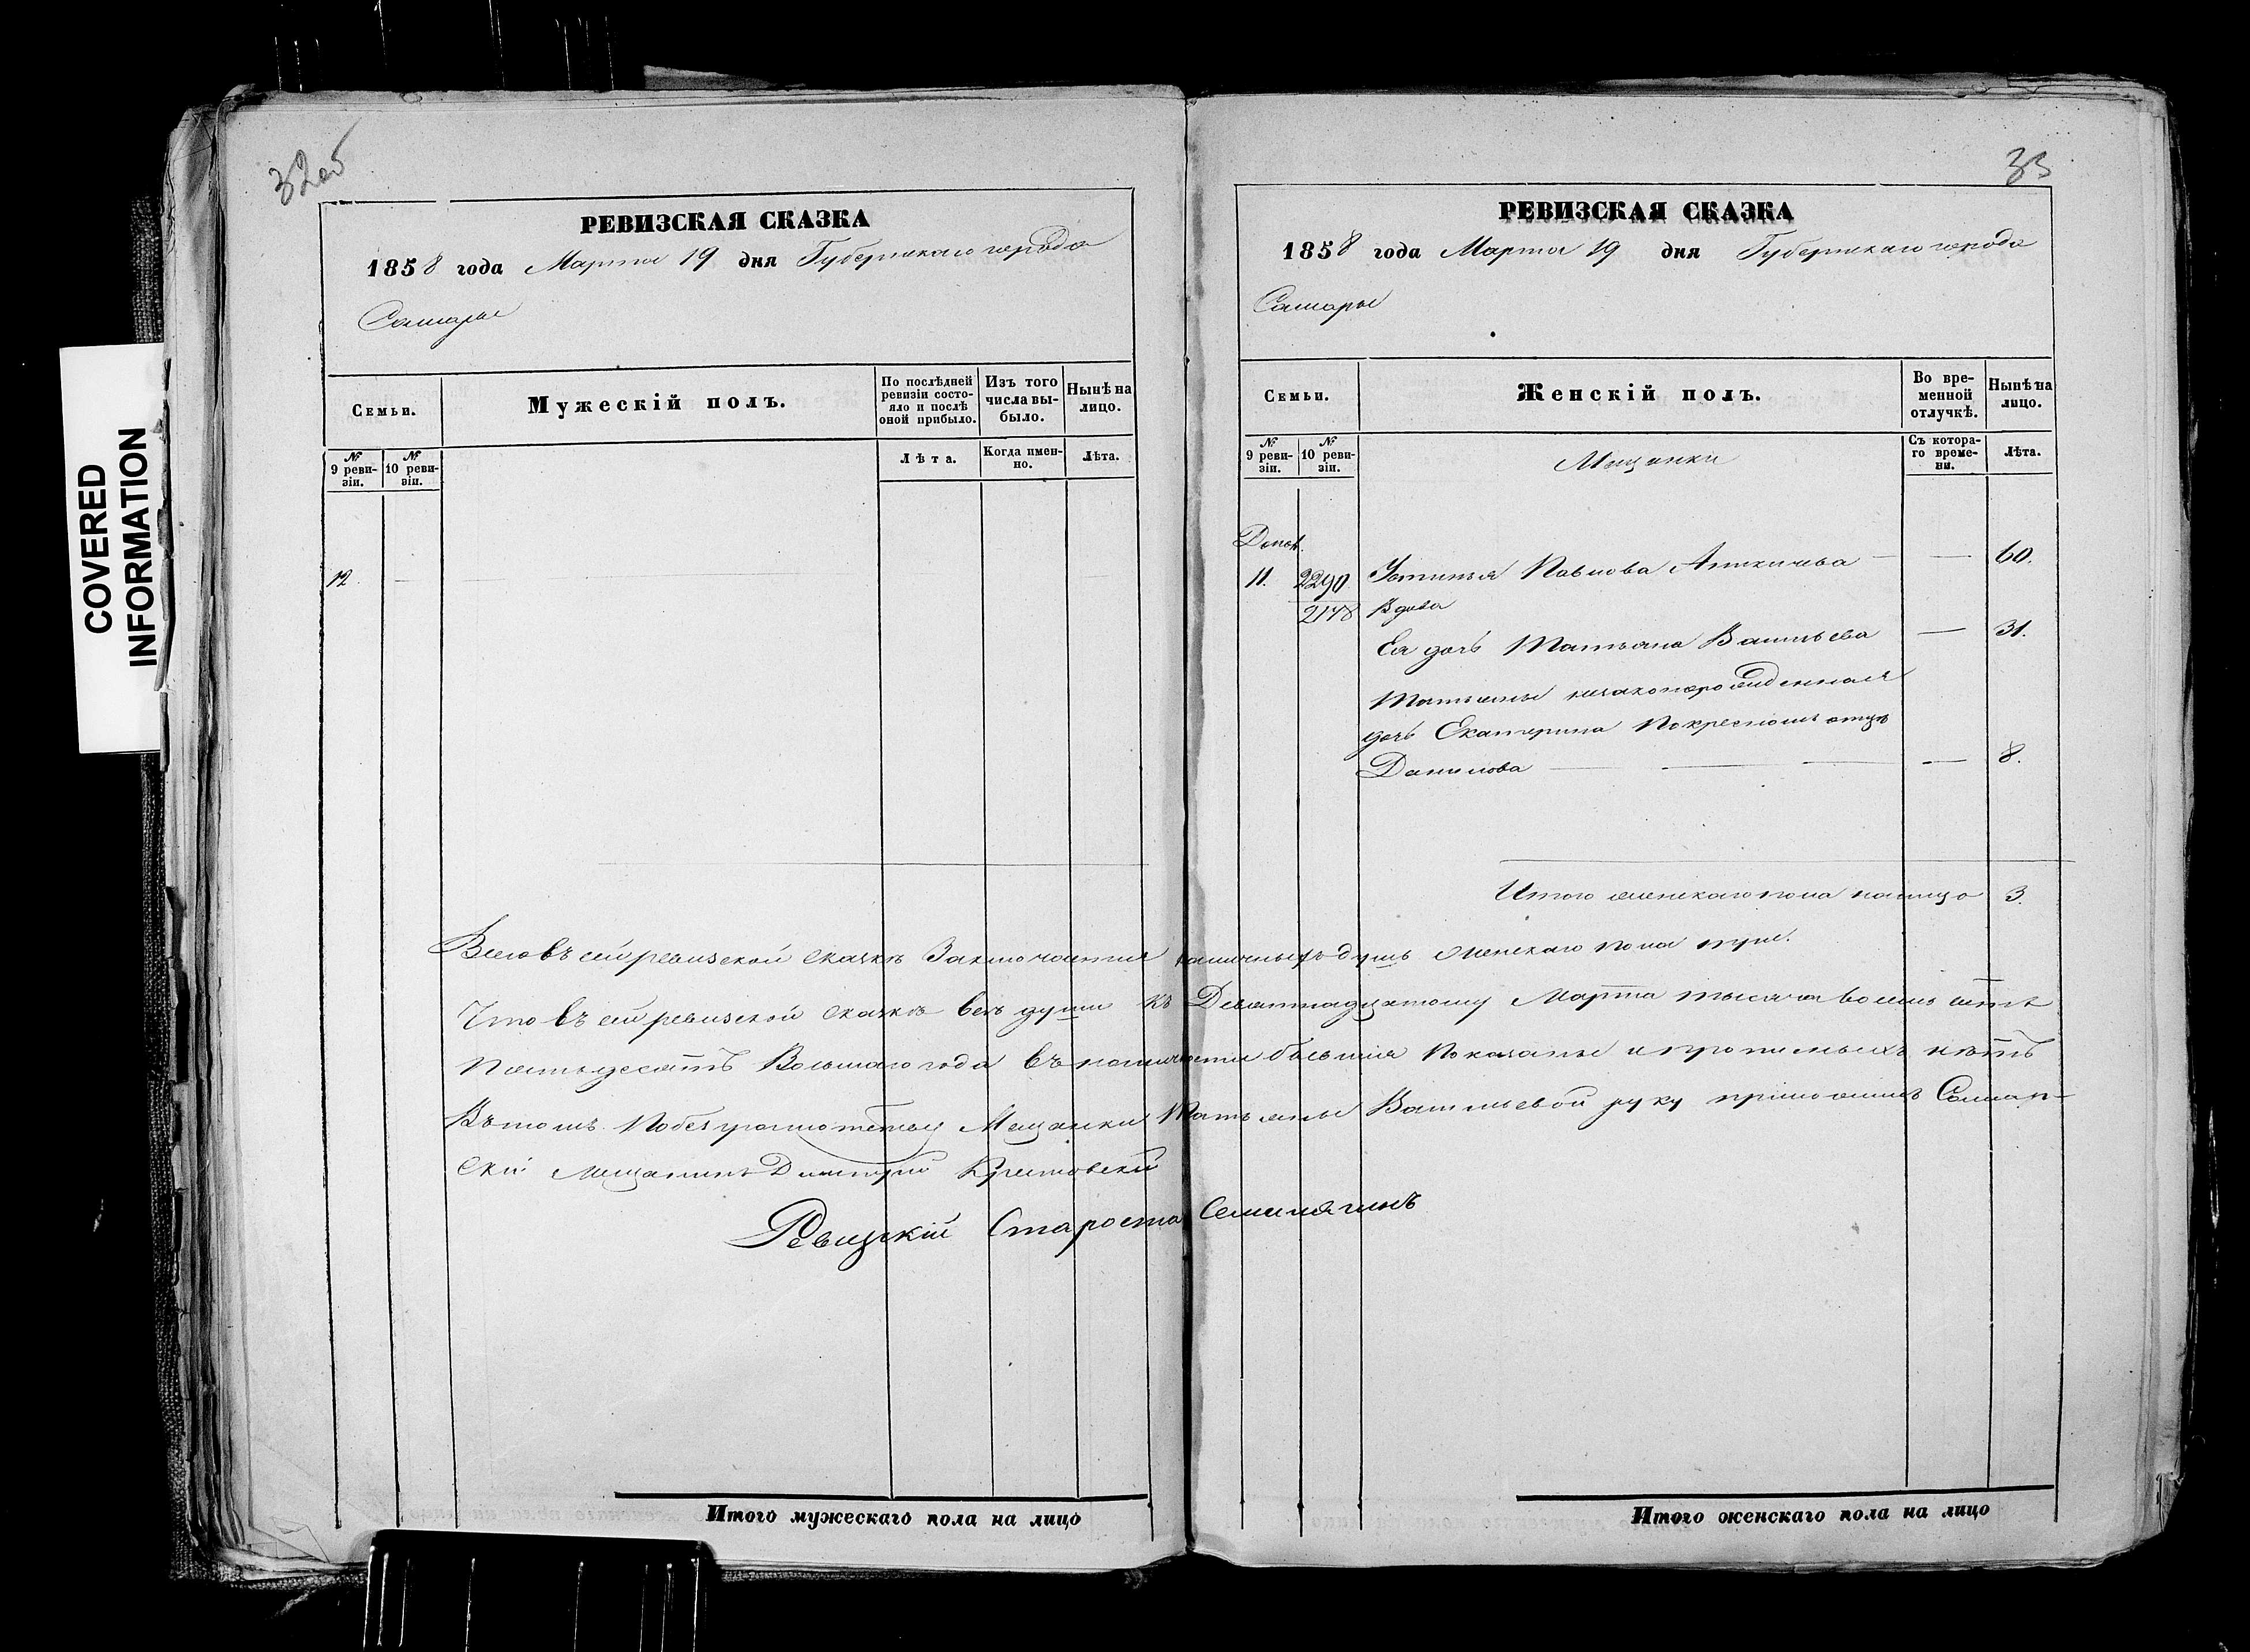 COVERED
INFORMATION
32об
РЕВИЗСКАЯ СКАЗКА
1858 года Марта 19 дня Губернскаго города
Самары
Семьи.
Мужескій полъ.
По послѣдней ревизіи состояло и послѣ оной прибыло.
Изъ того числа выбыло.
Нынѣ на лицо.
№ 9 ревизіи.
№ 10 ревизіи.
Лѣта.
Когда именно.
Лѣта.
12.
33
РЕВИЗСКАЯ СКАЗКА
1858 года Марта 19 дня Губернскаго города
Самары
Семьи.
Женскій полъ.
Во временной отлучкѣ.
Нынѣ на лицо.
№ 9 ревизіи.
№ 10 ревизіи.
Мещанки
Съ котораго времени.
Лѣта.
11. 2290 Устинья Павлова — — 60.
2178 Вдова
Ея дочь Татьяна Васильева — 31.
Татьяны незаконорожденная
дочь Екатерина по крестномъ отцѣ
Данилова — — — — 8.
Итого женскаго пола налицо 3.
Всего въ сей ревизской сказкѣ Заключается наличныхъ душъ женскаго пола три.
Что въ сей ревизской сказкѣ всѣ души къ Девятнадцатому Марта тысяча восемь сотъ
Пятьдесятъ Восьмаго года въ наличности бывшія Показаны и прописныхъ нѣтъ
Въ томъ По безграмотству Мещанки Татьяны Васильевой руку приложилъ Самар-
скій мещанинъ Дмитрій
Ревизскій Староста
Итого мужескаго пола на лицо
Итого женскаго пола на лицо